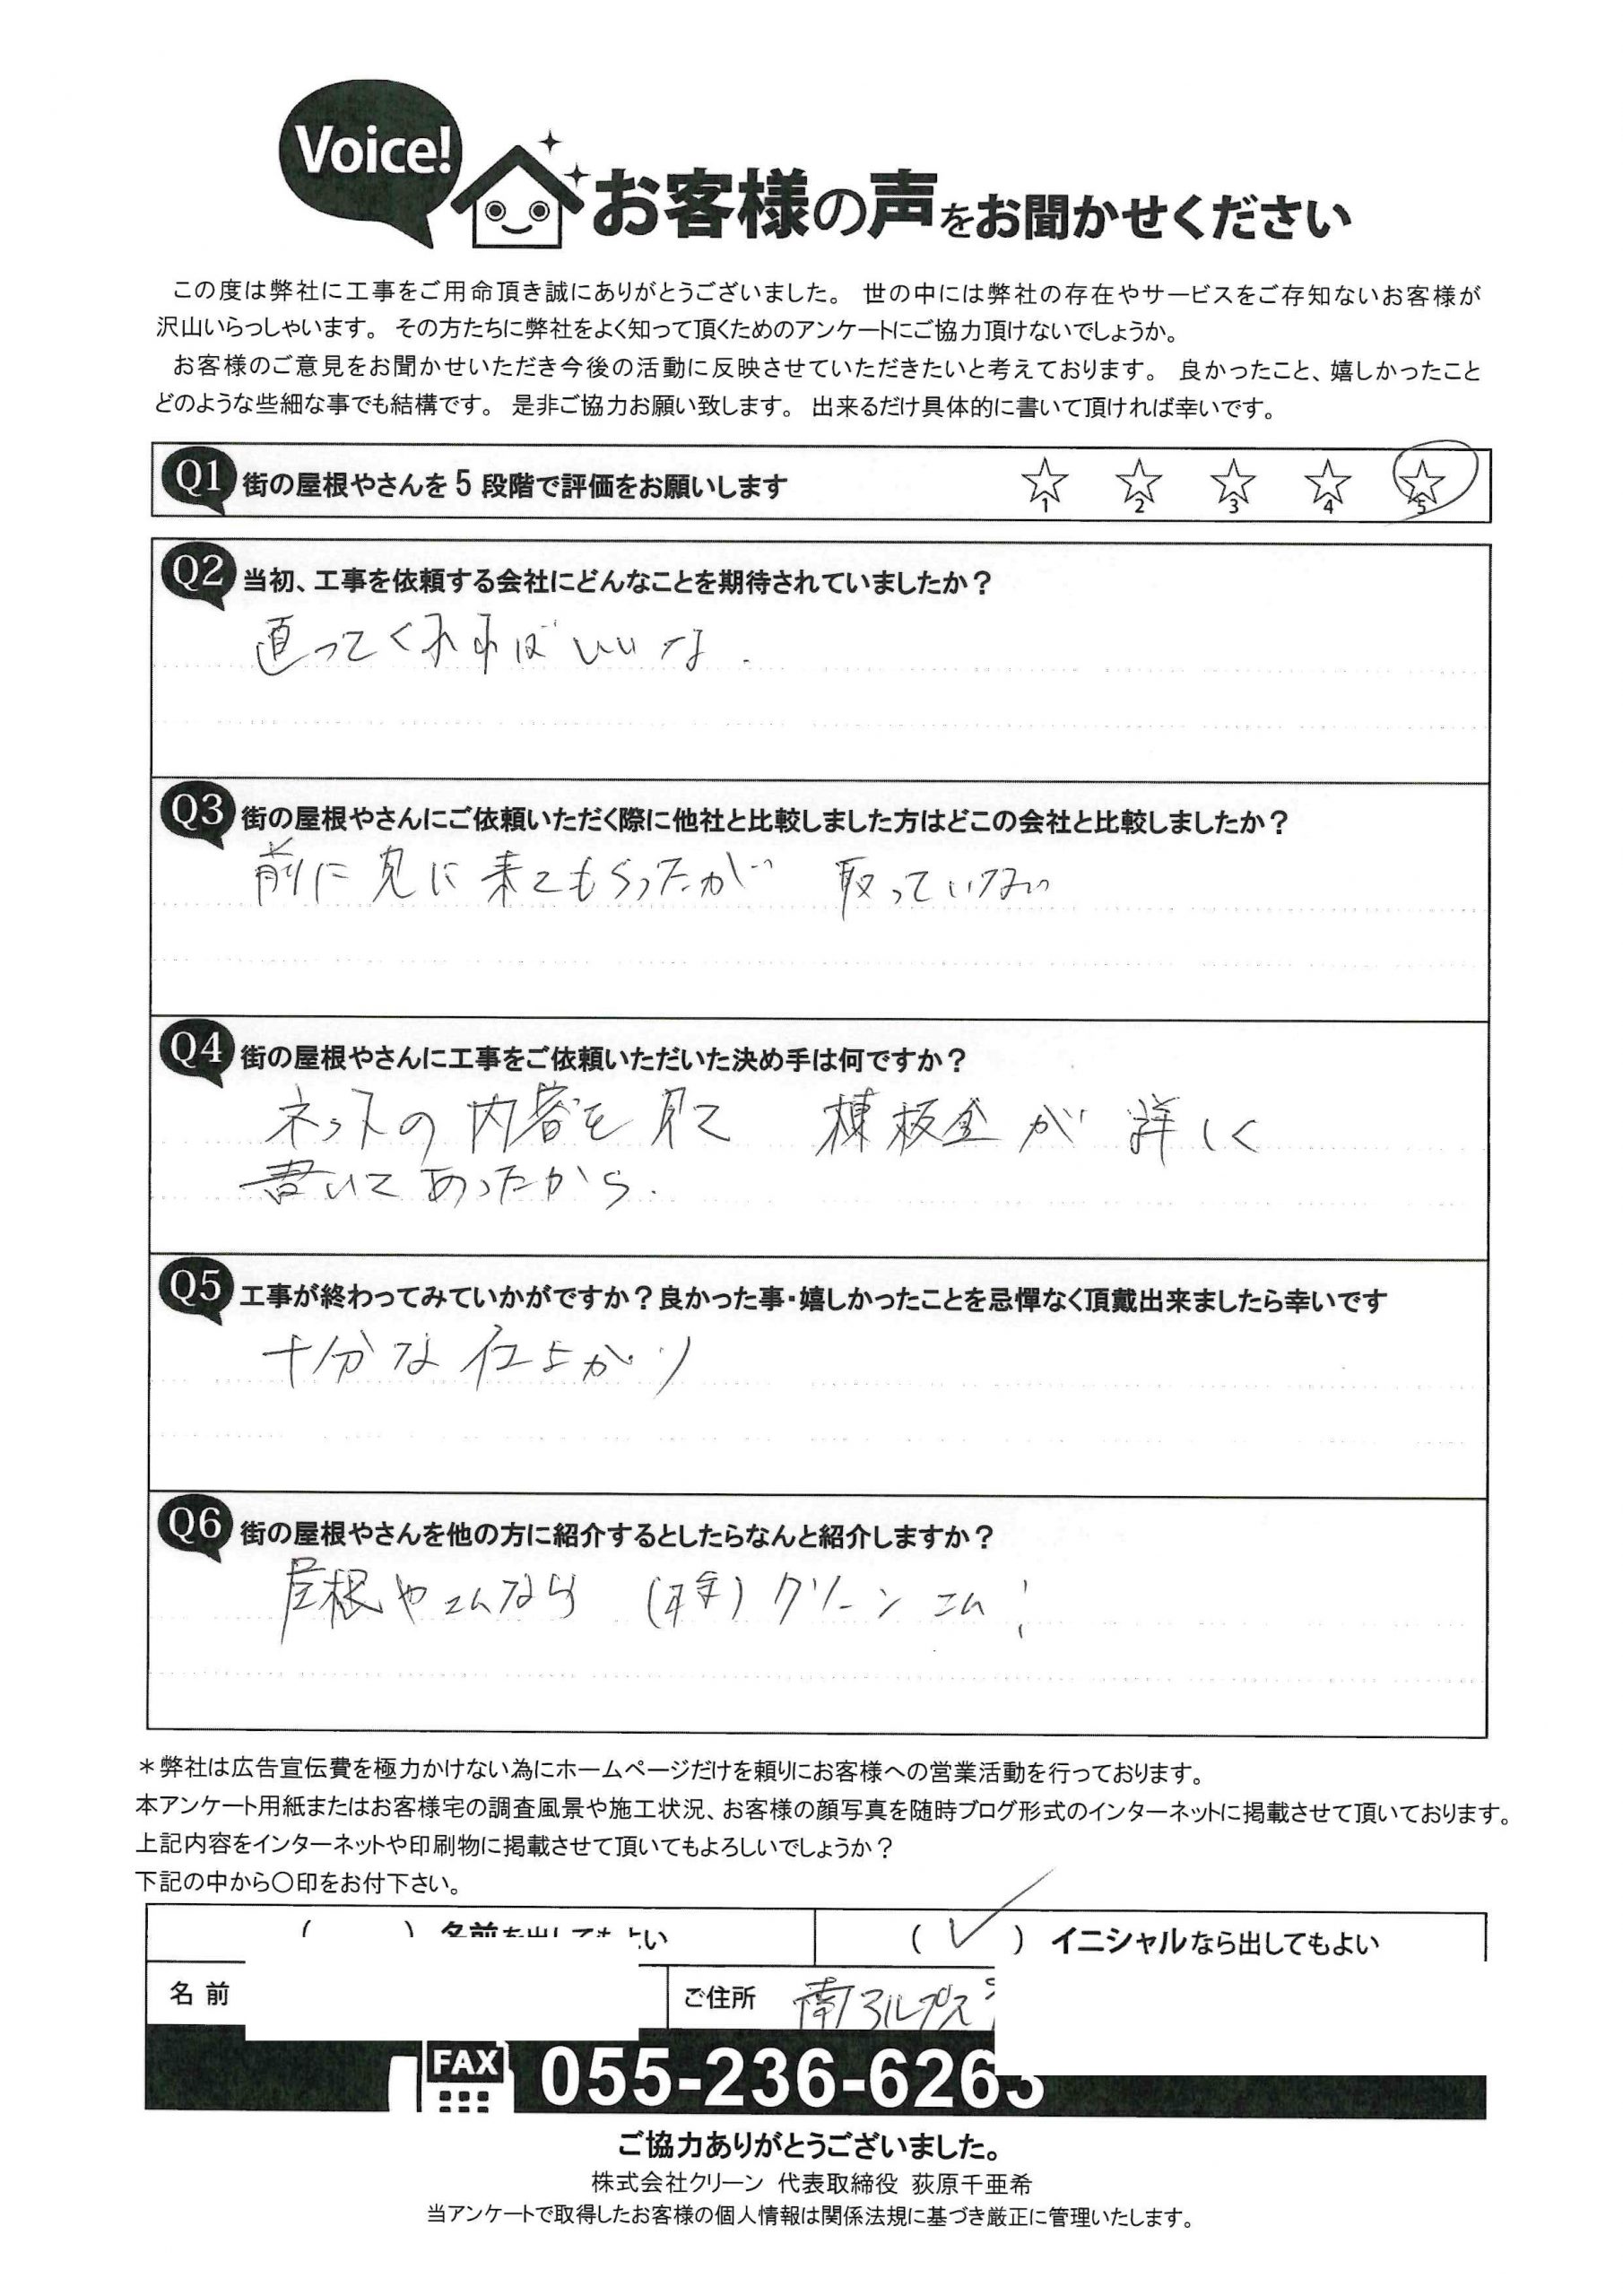 Voice!
お客様の声をお聞かせください
この度は弊社に工事をご用命頂き誠にありがとうございました。 世の中には弊社の存在やサービスをご存知ないお客様が
沢山いらっしゃいます。 その方たちに弊社をよく知って頂くためのアンケートにご協力頂けないでしょうか。
お客様のご意見をお聞かせいただき今後の活動に反映させていただきたいと考えております。 良かったこと、嬉しかったこと
どのような些細な事でも結構です。 是非ご協力お願い致します。 出来るだけ具体的に書いて頂ければ幸いです。
Q1 街の屋根やさんを5段階で評価をお願いします ☆1 ☆2 ☆3 ☆4 ☆5
Q2 当初、工事を依頼する会社にどんなことを期待されていましたか?
直ってくれればいいな.
Q3 街の屋根やさんにご依頼いただく際に他社と比較しました方はどこの会社と比較しましたか?
前に見に来てもらったが 取っていない
Q4 街の屋根やさんに工事をご依頼いただいた決め手は何ですか?
ネットの内容を見て 棟板金が詳しく
書いてあったから.
Q5 工事が終わってみていかがですか?良かった事・嬉しかったことを忌憚なく頂戴出来ましたら幸いです
十分な仕上がり
Q6 街の屋根やさんを他の方に紹介するとしたらなんと紹介しますか?
屋根やさんなら (株)クリーンさん!
*弊社は広告宣伝費を極力かけない為にホームページだけを頼りにお客様への営業活動を行っております。
本アンケート用紙またはお客様宅の調査風景や施工状況、お客様の顔写真を随時ブログ形式のインターネットに掲載させて頂いております。
上記内容をインターネットや印刷物に掲載させて頂いてもよろしいでしょうか?
下記の中から○印をお付下さい。
( ) 名前を出してもよい (✓) イニシャルなら出してもよい
名前 ご住所 南アルプス
FAX 055-236-6263
ご協力ありがとうございました。
株式会社クリーン 代表取締役 荻原千亜希
当アンケートで取得したお客様の個人情報は関係法規に基づき厳正に管理いたします。